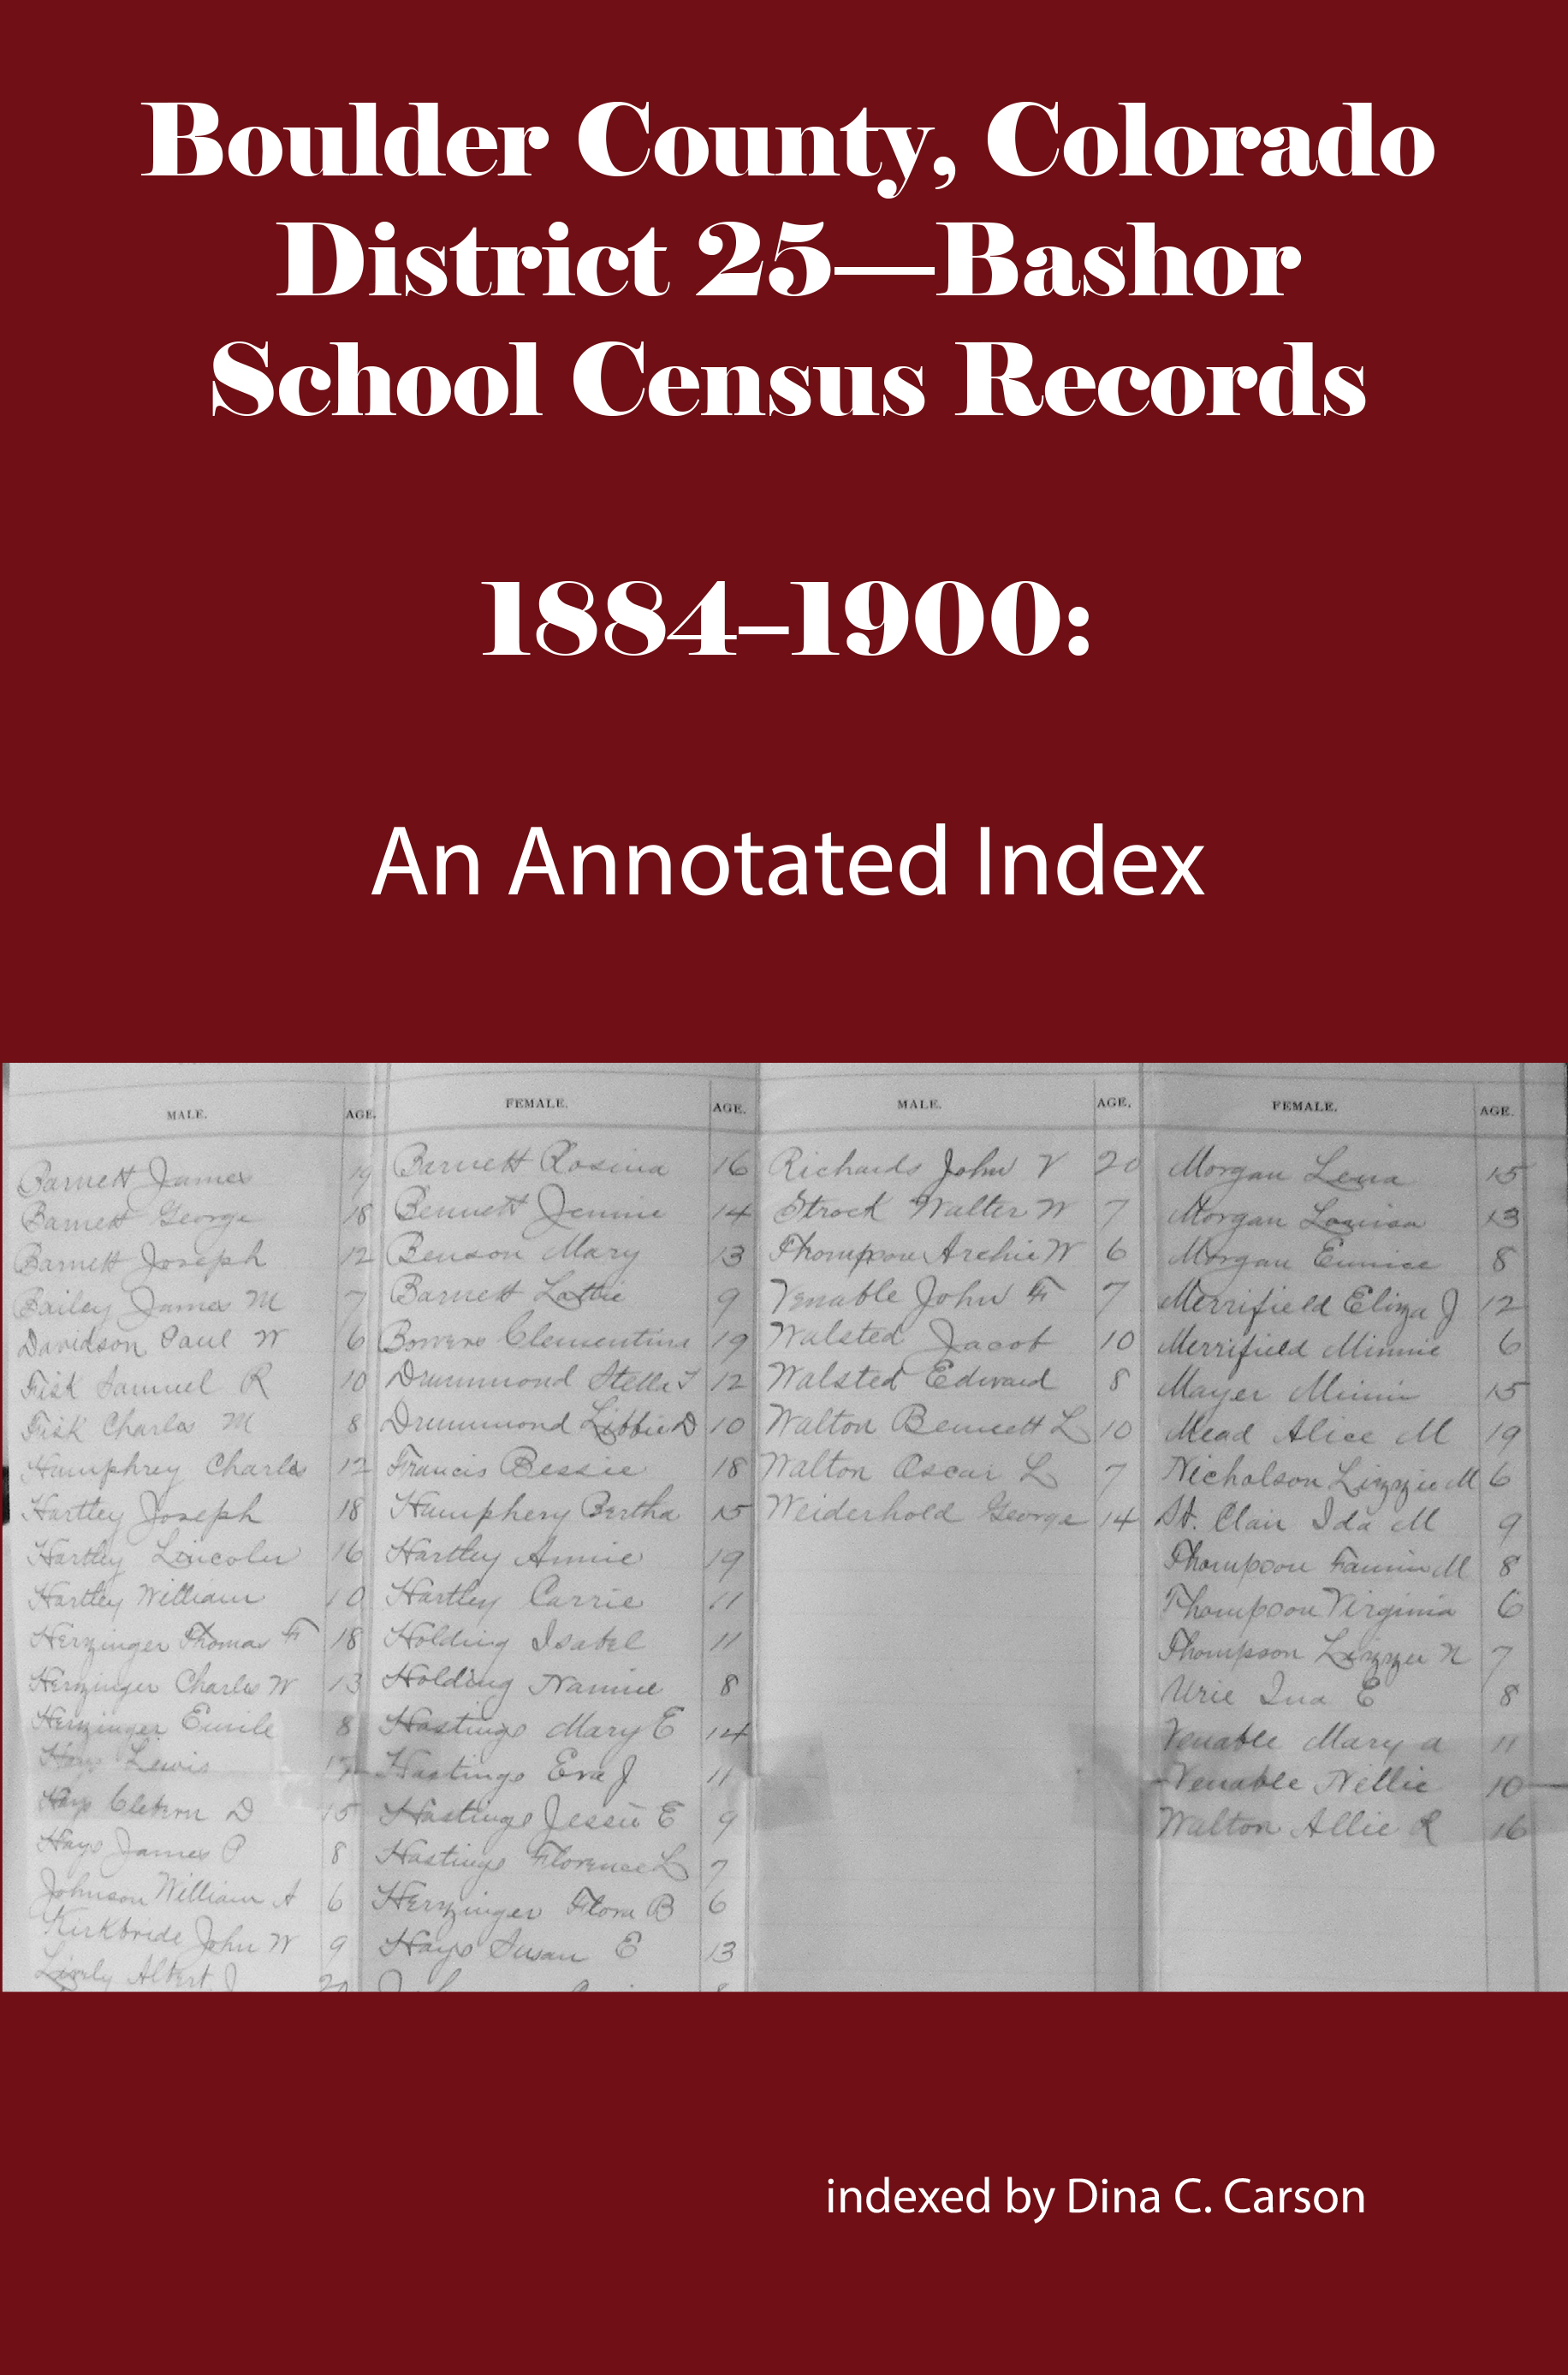 Boulder County, Colorado
District 25—Bashor
School Census Records
1884–1900:
An Annotated Index
MALE. AGE.
Barnett James 19
Barnett George 18
Barnett Joseph 12
Bailey James M 7
Davidson Paul W 6
Fisk Samuel R 10
Fisk Charles M 8
Humphrey Charles 12
Hartley Joseph 18
Hartley Lincoln 16
Hartley William 10
Herzinger Thomas F 18
Herzinger Charles W 13
Herzinger Emile 8
Hays Lewis
Hays Cleburn D 15
Hays James P 8
Johnson William A 6
Kirkbride John W 9
Lively Albert J 20
FEMALE. AGE.
Barnett Rosina 16
Bennett Jennie 14
Benson Mary 13
Barnett Lottie 9
Bowers Clementine 19
Drummond Stella T 12
Drummond Libbie D 10
Francis Bessie 18
Humphery Bertha 15
Hartley Annie 19
Hartley Carrie 11
Holding Isabel 11
Holding Nannie 8
Hastings Mary E 14
Hastings Eva J 11
Hastings Jessie E 9
Hastings Florence L 7
Herzinger Flora B 6
Hays Susan E 13
MALE. AGE.
Richards John V 20
Strock Walter W 7
Thompson Archie W 6
Venable John F 7
Walsted Jacob 10
Walsted Edward 8
Walton Bennett L 10
Walton Oscar L 7
Weiderhold George 14
FEMALE. AGE.
Morgan Lena 15
Morgan Louisa 13
Morgan Eunice 8
Merrifield Eliza J 12
Merrifield Minnie 6
Mayer Minnie 15
Mead Alice M 19
Nicholson Lizzie M 6
St. Clair Ida M 9
Thompson Fannie M 8
Thompson Virginia 6
Thompson Lizzie N 7
Urie Ina E 8
Venable Mary A 11
Venable Nellie 10
Walton Allie R 16
indexed by Dina C. Carson